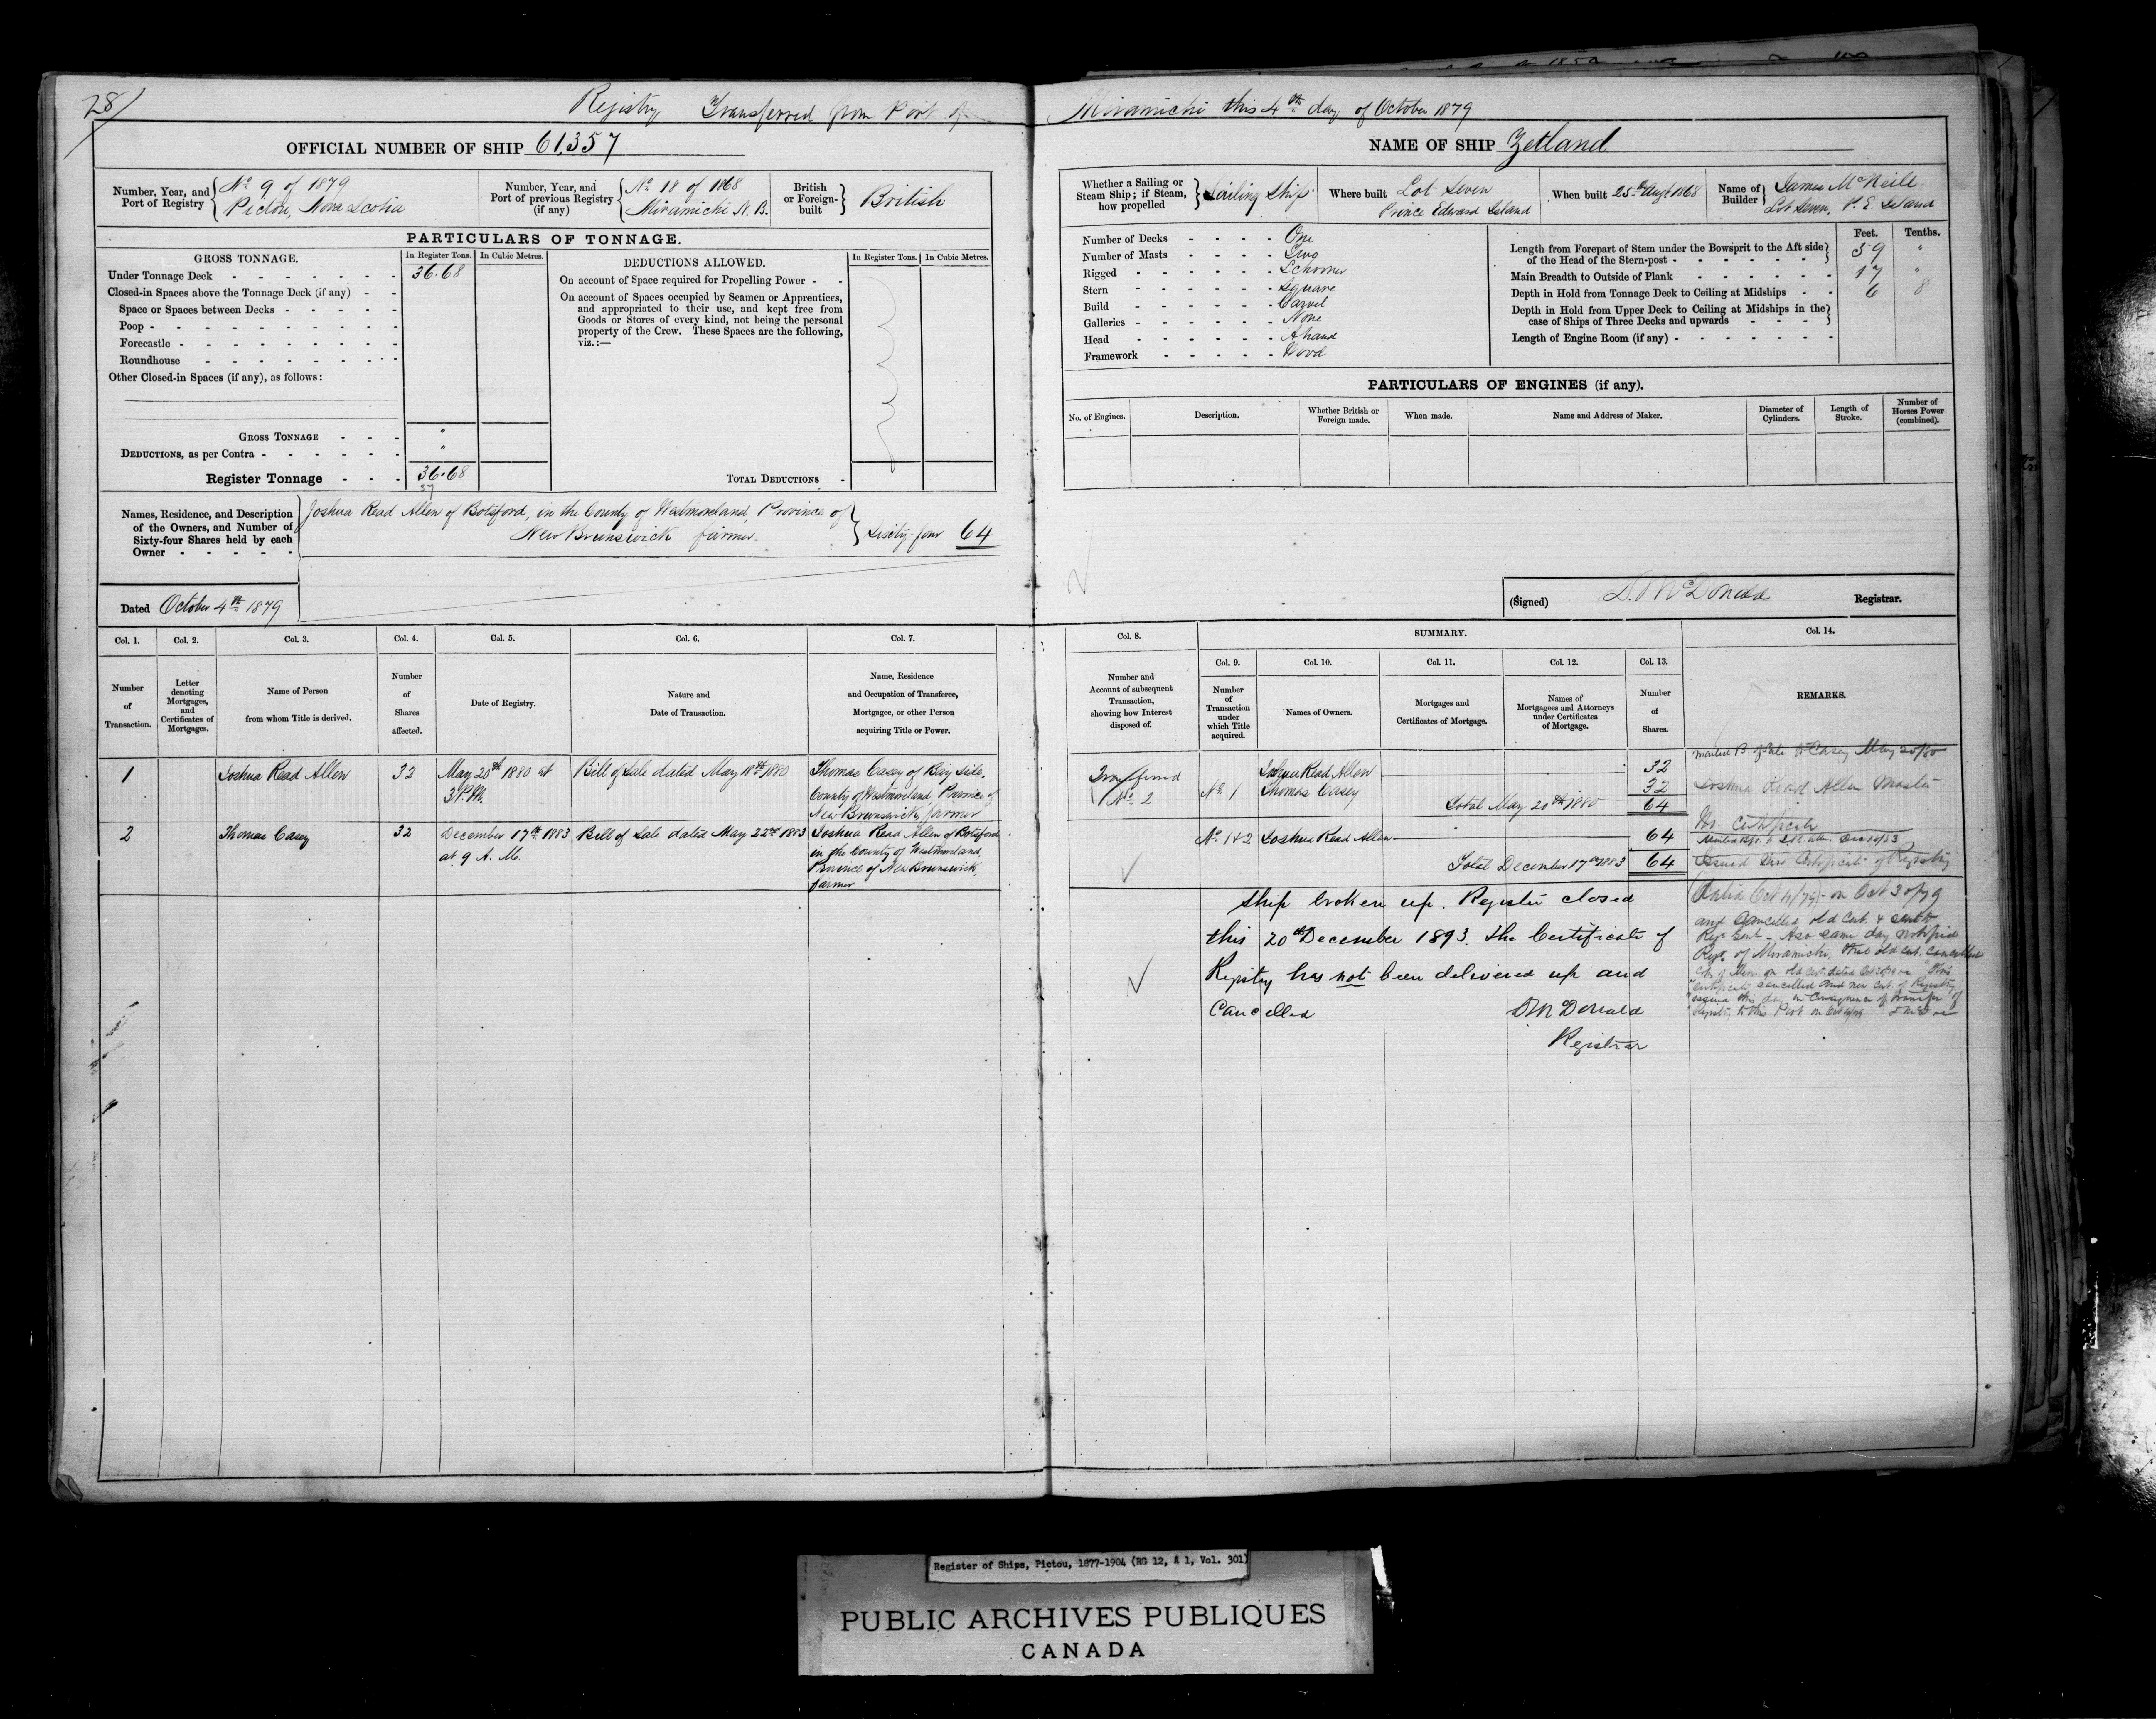 281
Registry Transferred from Port of Miramichi this 4th day of October 1879
OFFICIAL NUMBER OF SHIP 61,357
NAME OF SHIP Zetland
Number, Year, and Port of Registry
No 9 of 1879
Pictou, Nova Scotia
Number, Year, and Port of previous Registry (if any)
No 18 of 1868
Miramichi N. B.
British or Foreign-built
British
Whether a Sailing or Steam Ship; if Steam, how propelled
Sailing Ship
Where built Lot Seven
Prince Edward Island
When built 25th Augt 1868
Name of Builder
James McNeill
Lot Seven, P. E. Island
PARTICULARS OF TONNAGE.
GROSS TONNAGE.
In Register Tons. In Cubic Metres.
Under Tonnage Deck 36.68
Closed-in Spaces above the Tonnage Deck (if any)
Space or Spaces between Decks
Poop
Forecastle
Roundhouse
Other Closed-in Spaces (if any), as follows:
GROSS TONNAGE "
DEDUCTIONS, as per Contra "
Register Tonnage 36.68
37
DEDUCTIONS ALLOWED.
In Register Tons. In Cubic Metres.
On account of Space required for Propelling Power
On account of Spaces occupied by Seamen or Apprentices,
and appropriated to their use, and kept free from
Goods or Stores of every kind, not being the personal
property of the Crew. These Spaces are the following,
viz.:—
TOTAL DEDUCTIONS
Number of Decks One
Number of Masts Two
Rigged Schooner
Stern Square
Build Carvel
Galleries None
Head A head
Framework Wood
Feet. Tenths.
Length from Forepart of Stem under the Bowsprit to the Aft side
of the Head of the Stern-post 59 "
Main Breadth to Outside of Plank 17 "
Depth in Hold from Tonnage Deck to Ceiling at Midships 6 8
Depth in Hold from Upper Deck to Ceiling at Midships in the
case of Ships of Three Decks and upwards
Length of Engine Room (if any)
PARTICULARS OF ENGINES (if any).
No. of Engines.
Description.
Whether British or Foreign made.
When made.
Name and Address of Maker.
Diameter of Cylinders.
Length of Stroke.
Number of Horses Power (combined).
Names, Residence, and Description
of the Owners, and Number of
Sixty-four Shares held by each
Owner
Joshua Read Allen of Botsford, in the County of Westmoreland, Province of
New Brunswick farmer. Sixty-four 64
Dated October 4th 1879
(Signed) D. McDonald Registrar.
Col. 1. Col. 2. Col. 3. Col. 4. Col. 5. Col. 6. Col. 7.
Number of Transaction.
Letter denoting Mortgages, and Certificates of Mortgages.
Name of Person from whom Title is derived.
Number of Shares affected.
Date of Registry.
Nature and Date of Transaction.
Name, Residence and Occupation of Transferee, Mortgagee, or other Person acquiring Title or Power.
Col. 8. SUMMARY. Col. 14.
Col. 9. Col. 10. Col. 11. Col. 12. Col. 13.
Number and Account of subsequent Transaction, showing how Interest disposed of.
Number of Transaction under which Title acquired.
Names of Owners.
Mortgages and Certificates of Mortgage.
Names of Mortgagees and Attorneys under Certificates of Mortgage.
Number of Shares.
REMARKS.
1 Joshua Read Allen 32 May 20th 1880 at
3 P.M.
Bill of Sale dated May 18th 1880
Thomas Casey of Bay side,
County of Westmoreland Province of
New Brunswick, farmer
2 Thomas Casey 32 December 17th 1883
at 9 A. M.
Bill of Sale dated May 22nd 1883
Joshua Read Allen of Botsford
in the County of Westmoreland,
Province of New Brunswick,
farmer
Transferred
No. 2
Joshua Read Allen 32
No 1 Thomas Casey 32
Total May 20th 1880 64
No 1 & 2 Joshua Read Allen 64
Total December 17th 1883 64
Ship broken up. Register closed
this 20th December 1893. The Certificate of
Registry has not been delivered up and
Cancelled D McDonald
Registrar
B of Sale to Casey May 20/80
Joshua Read Allen Master
Issued New Certificate of Registry
Dated Oct 4/79 on Oct 30/79
and Cancelled old Cert. &
Also same day notified
Regr. of Miramichi, that old Cert. Cancelled
certificate cancelled and new Cert. of Registry
issued this day in Consequence of transfer of
Registry to this Port on
Register of Ships, Pictou, 1877-1904 (RG 12, A 1, Vol. 301)
PUBLIC ARCHIVES PUBLIQUES
CANADA